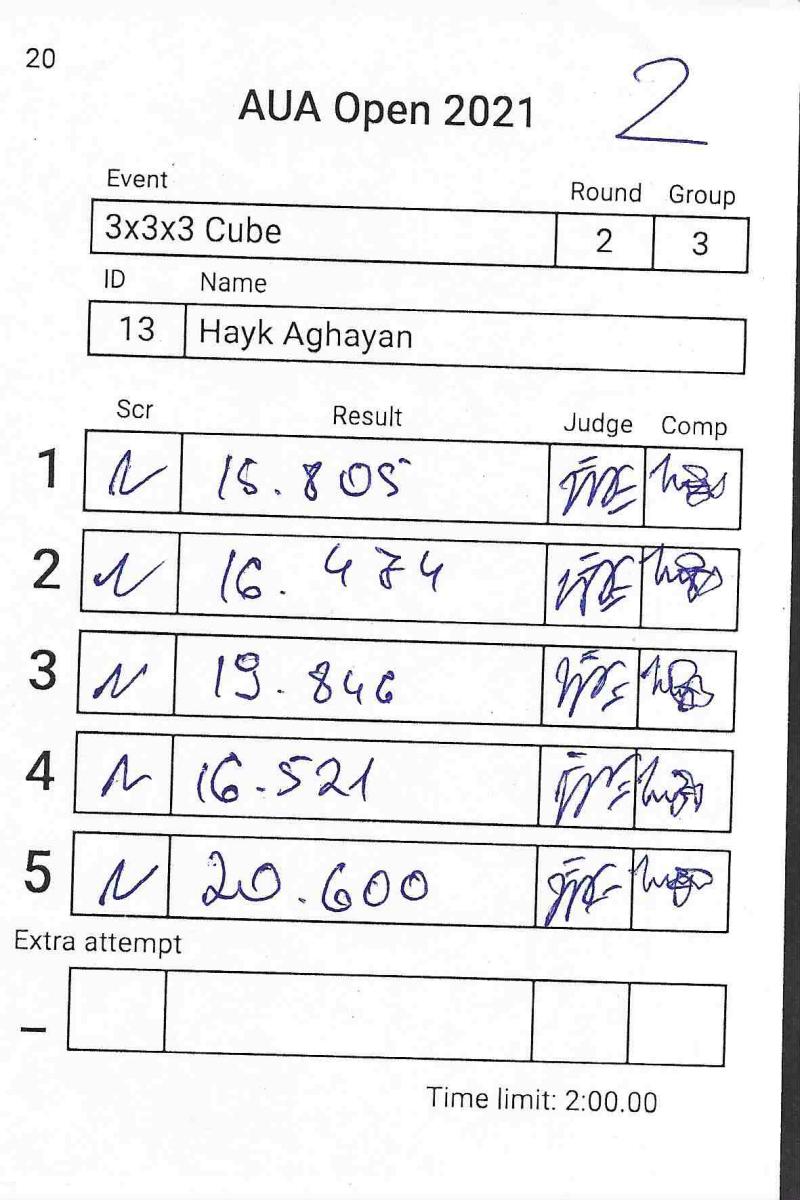 20
AUA Open 2021 2
Event Round Group
3x3x3 Cube 2 3
ID Name
13 Hayk Aghayan
Scr Result Judge Comp
1 N 15.805
2 N 16.474
3 N 19.846
4 N 16.521
5 N 20.600
Extra attempt
_
Time limit: 2:00.00